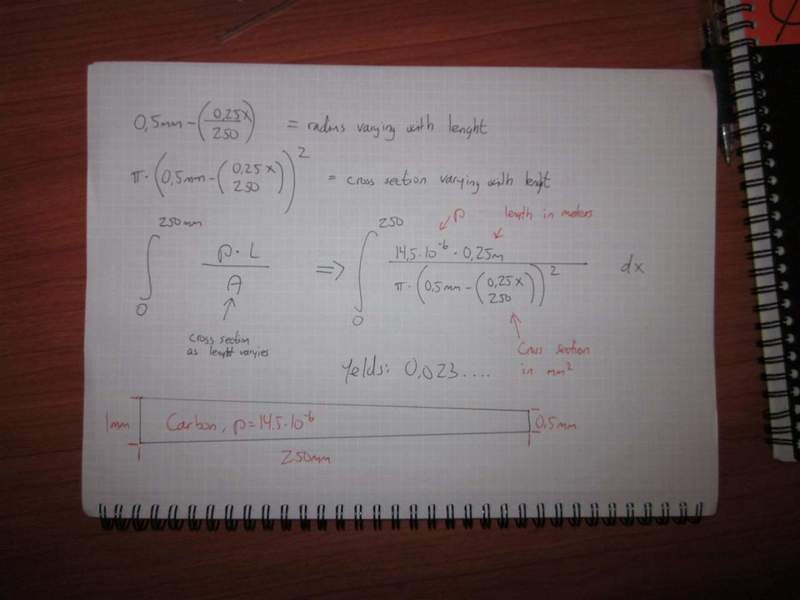 0,5mm - (0,25x / 250) = radius varying with lenght
π · (0,5mm - (0,25x / 250))² = cross section varying with lenght
∫₀^250mm ρ · L / A ⇒ ∫₀^250 14,5 · 10⁻⁶ · 0,25m / π · (0,5mm - (0,25x / 250))² dx
ρ
length in meters
cross section
as lenght varies
Cross section
in mm²
Yelds: 0,023....
1mm
Carbon, ρ = 14.5 · 10⁻⁶
0,5mm
250mm